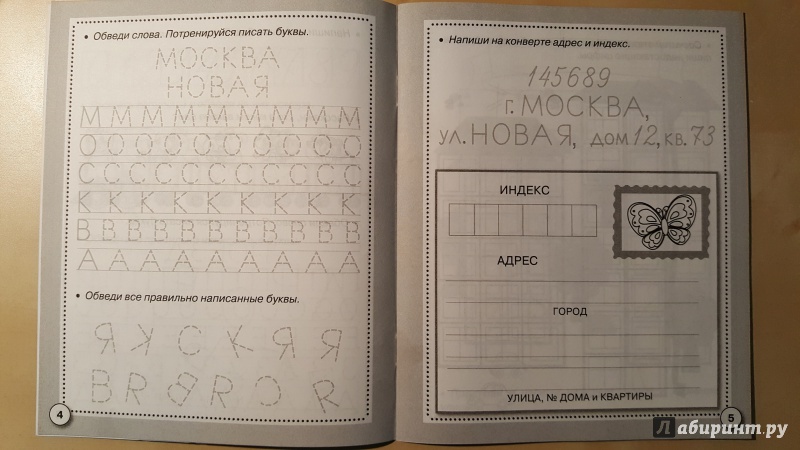 • Обведи слова. Потренируйся писать буквы.
МОСКВА
НОВАЯ
М М М М М М М М М М М
О О О О О О О О О О О
С С С С С С С С С С С
К К К К К К К К К К
В В В В В В В В В В В
А А А А А А А А А А
• Обведи все правильно написанные буквы.
Я К С К Я Я
В R В R Ɔ R
4
• Напиши на конверте адрес и индекс.
145689
г. МОСКВА,
ул. НОВАЯ, дом 12, кв. 73
ИНДЕКС
АДРЕС
ГОРОД
УЛИЦА, № ДОМА и КВАРТИРЫ
5
Лабиринт.ру